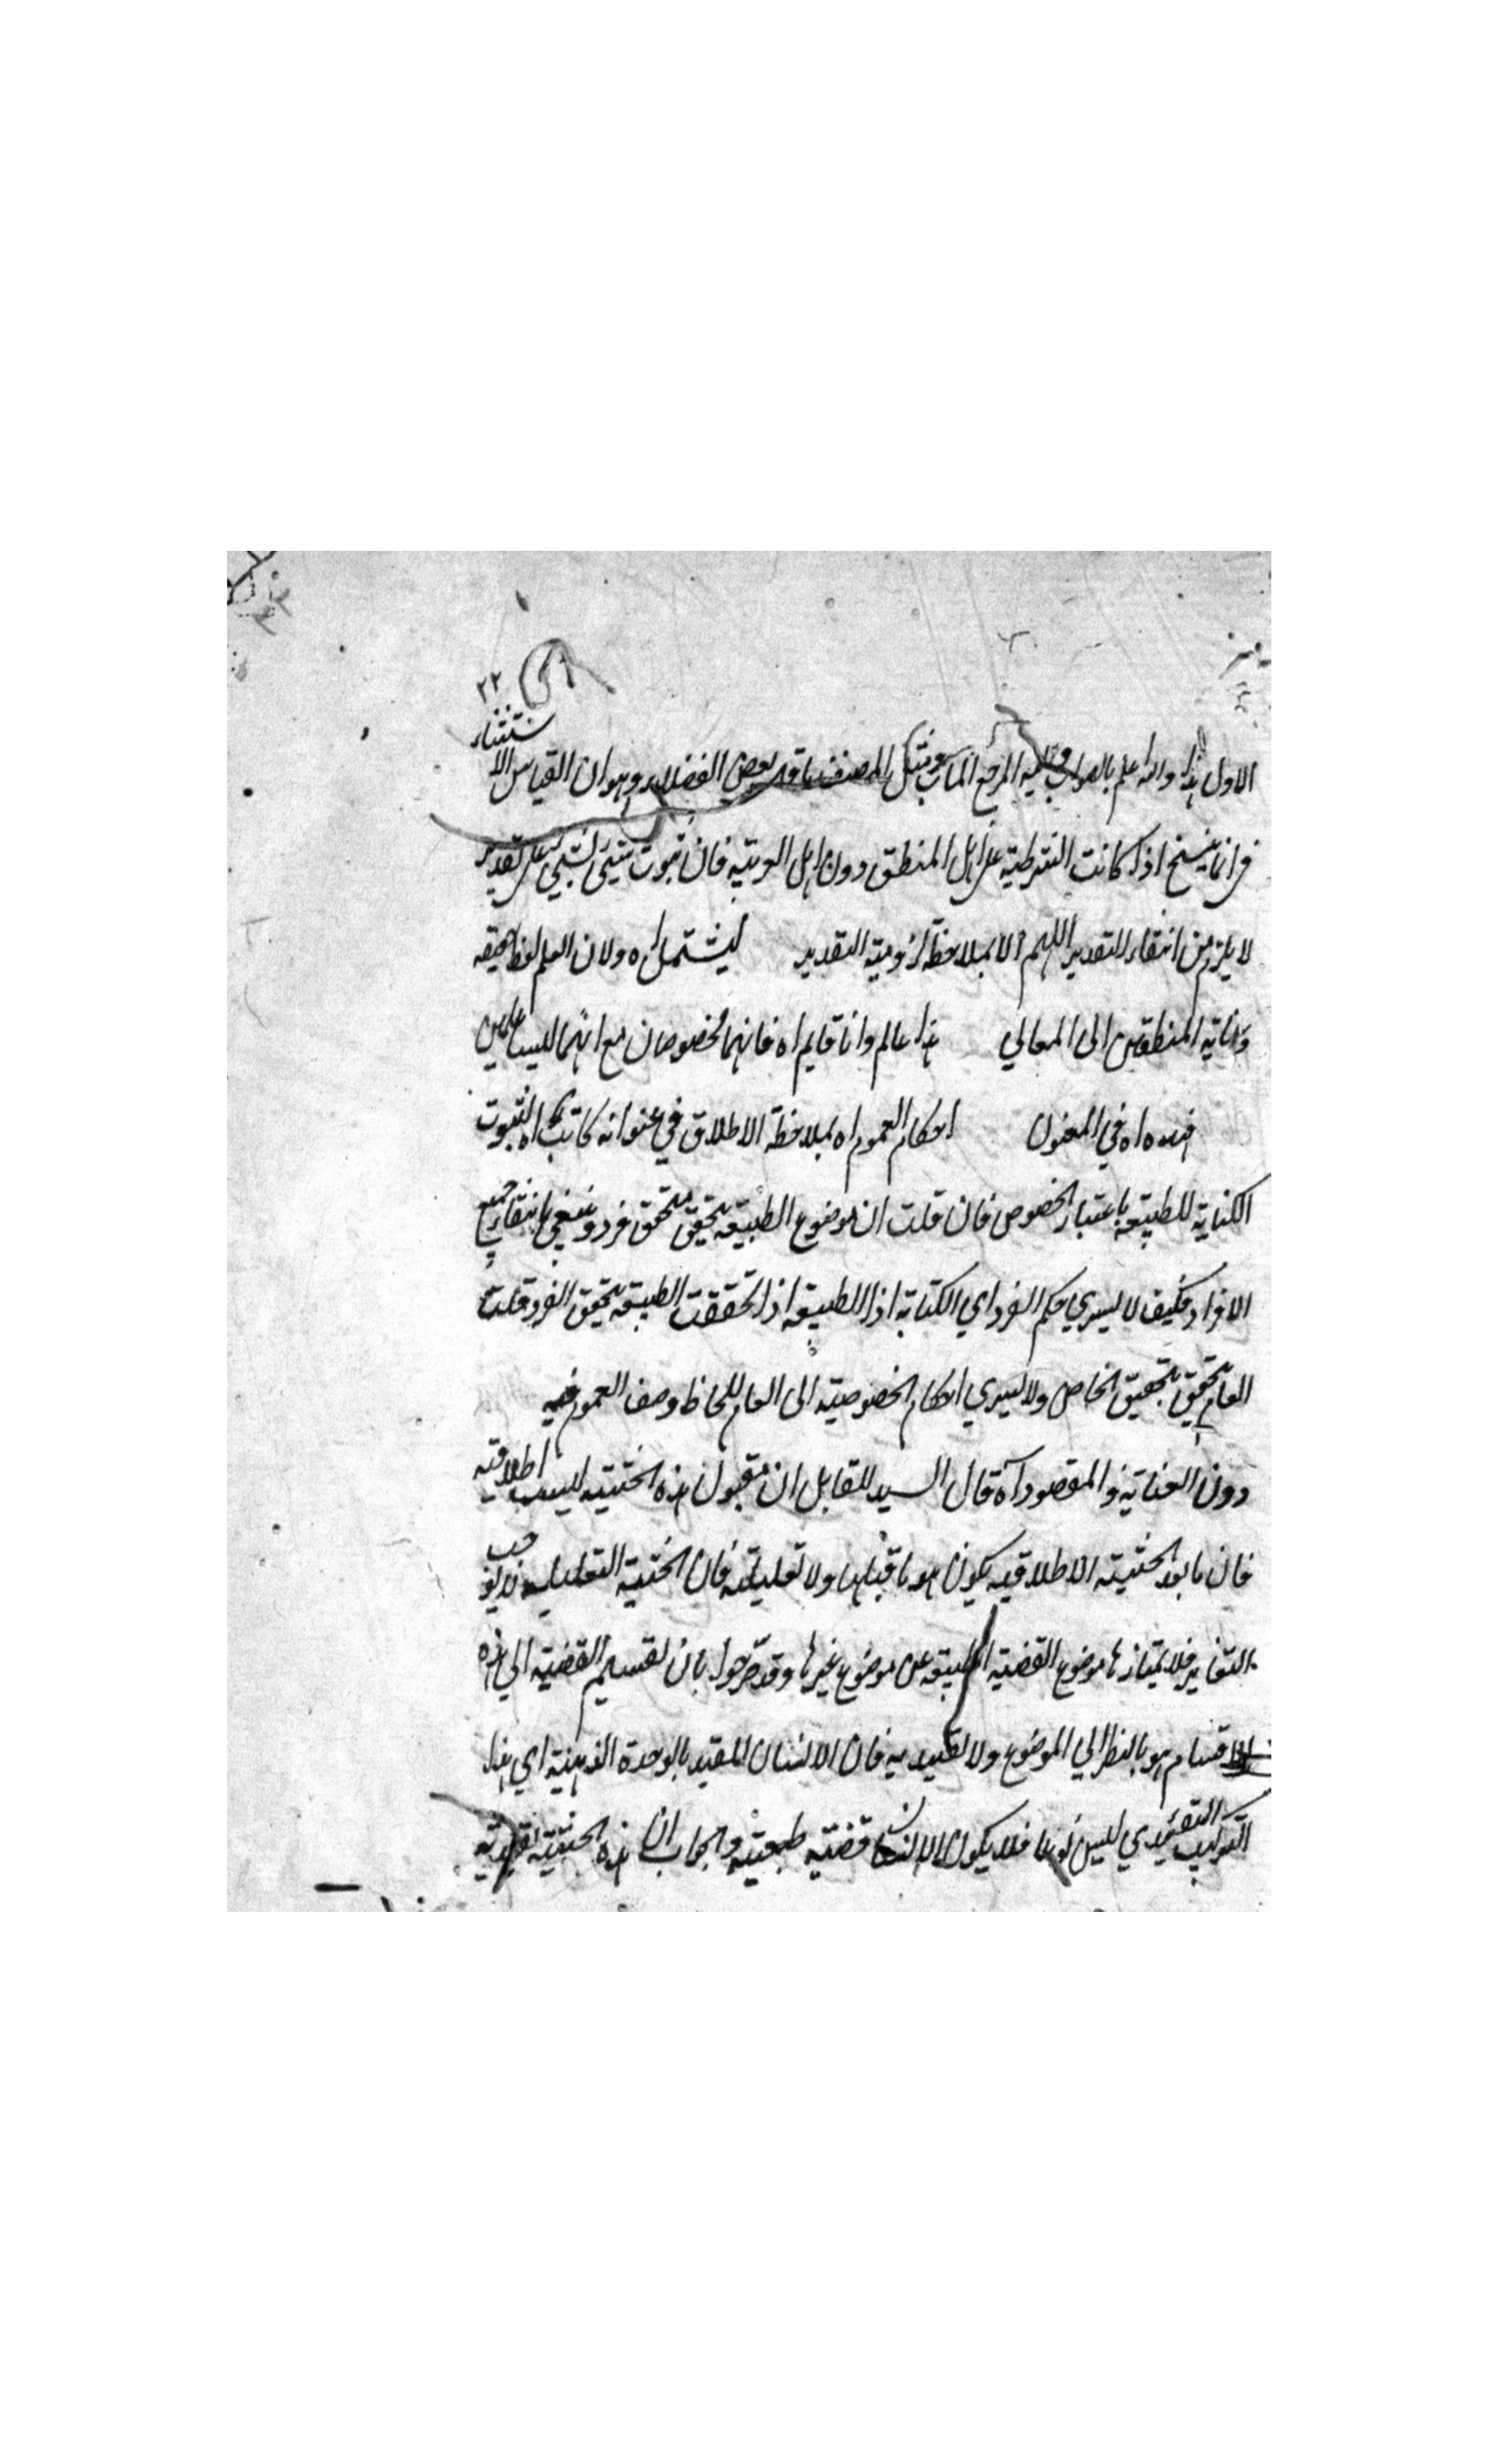 ٢٢
الاول هذا والله اعلم بالصواب واليه المرجع المآب المصنف ما قد بعض الفضلاء وهو ان القياس الاستثناء
انما ينتج اذا كانت الشرطية على اهل المنطق دون اهل العربية فان ثبوت شيئ لشيئ على تقدير
لا يلزم من انتفاء التقدير اللهم الا بملاحظة لزومية التقدير ليشتمل اه ولان العلم لفظ حقيقه
المنطقيين الى المعاني هذا عالم وانا قايم اه فانهما مخصوصان مع انهما ليسا
اه في المعنون احكام العموم اه بملاحظة الاطلاق في عنوانه كاتب اه لثبوت
الكتابة للطبيعة باعتبار الخصوص فان قلت ان موضوع الطبيعة يتحقق بتحقق فرد وينتفي بانتفاء جميع
الافراد فكيف لا يسري حكم الفرد اي الكتابة اذا الطبيعة اذا تحققت الطبيعة بتحقق الفرد قلت
العام يتحقق بتحقيق الخاص ولا يسري احكام الخصوصية الى العام للحاظ وصف العموم فيه
دون والمقصود اه قال السيد للقايل ان يقول ان هذه الحيثية ليست اطلاقية
فان ما بعد الحيثية الاطلاقيه يكون هو ما قبلها ولا تعليلية فان الحيثية التعليلية
التغاير فلا يمتاز بها موضوع القضية الطبيعة عن موضوع غيرها وقد صرحوا بان تقسيم القضية الى هذه
الاقسام هو بالنظر الي الموضوع ولا تقييديه فان الانسان المقيد بالوحدة الذهنية اي هذا
التركيب التقييدي ليس نوعا فلا يكون الانسان قضية طبيعية والجواب ان هذه الحيثية تقييدية